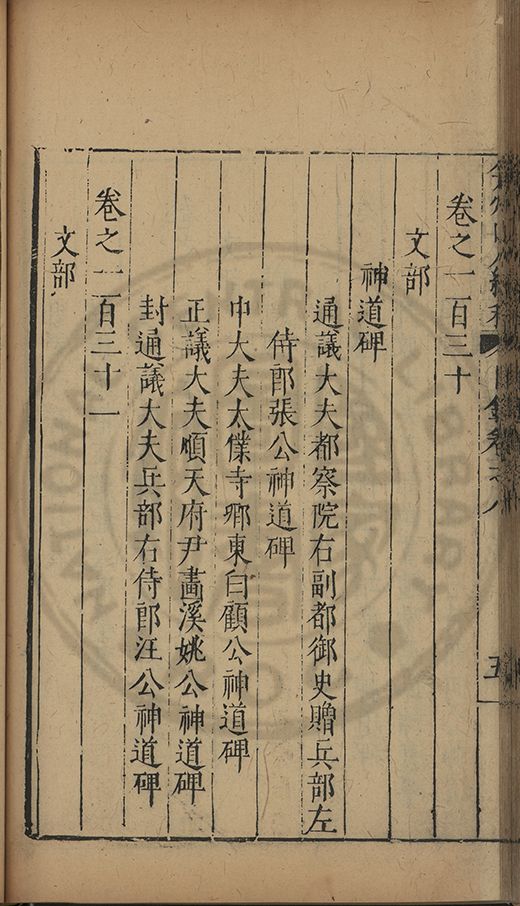 卷之一百三十
文部
神道碑
通議大夫都察院右副都御史贈兵部左
侍郎張公神道碑
中大夫太僕寺卿東白顧公神道碑
正議大夫順天府尹畫溪姚公神道碑
封通議大夫兵部右侍郎汪公神道碑
卷之一百三十一
文部